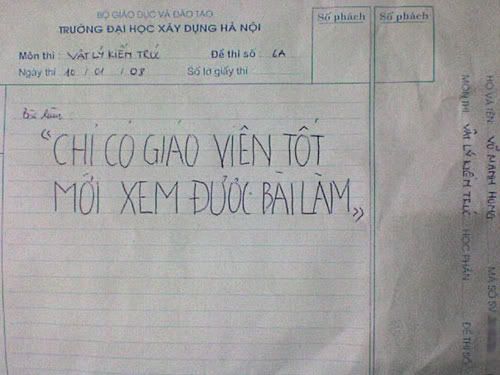 BỘ GIÁO DỤC VÀ ĐÀO TẠO
TRƯỜNG ĐẠI HỌC XÂY DỰNG HÀ NỘI
Môn thi : VẬT LÝ KIẾN TRÚC Đề thi số : 6A
Ngày thi 10 / 01 / 08 Số tờ giấy thi
Số phách
Số phách
Bài làm:
“CHỈ CÓ GIÁO VIÊN TỐT
MỚI XEM ĐƯỢC BÀI LÀM”
HỌ VÀ TÊN VŨ MẠNH HÙNG MÃ SỐ SV
MÔN THI VẬT LÝ KIẾN TRÚC HỌC PHẦN ĐỀ THI SỐ